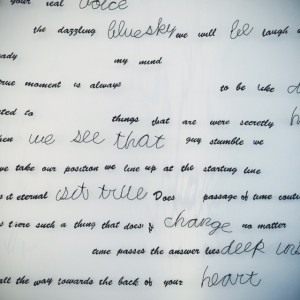 your real voice
the dazzling bluesky we will be laugh
my mind
true moment is always to be like
things that are were secretly
we see that guy stumble we
we take our position we line up at the starting line
it eternal isit true Does passage of time
such a thing that does change no matter
time passes the answer lies deep
all the way towards the back of your heart